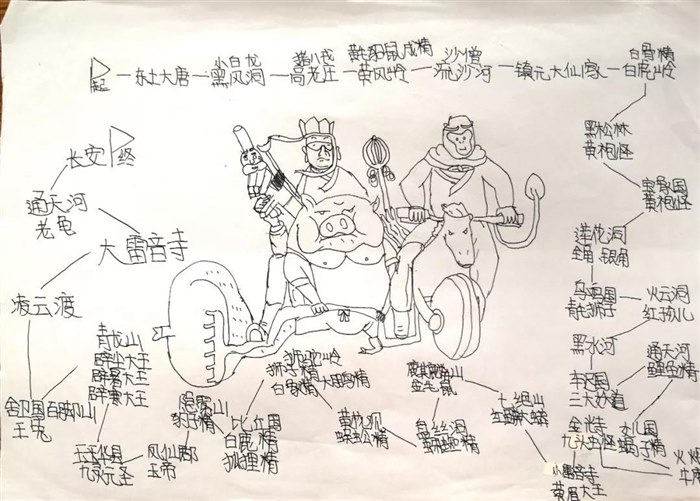 起
东土大唐
小白龙
黑风洞
猪八戒
高老庄
黄风岭
沙僧
流沙河
镇元大仙家
白骨精
白虎岭
黑松林
黄袍怪
宝象国
黄袍怪
莲花洞
金角 银角
乌鸡国
青毛狮子
火云洞
红孩儿
黑水河
通天河
车迟国
三大妖道
女儿国
蝎子精
小雷音寺
黄眉大王
七绝山
盘丝洞
蜘蛛精
黄花观
蜈蚣精
狮驼岭
狮子精
白象精
大鹏精
比丘国
白鹿精
狐狸精
隐雾山
豹子精
凤仙郡
玉帝
玉华县
九灵元圣
青龙山
辟尘大王
辟暑大王
辟寒大王
舍卫国百脚山
玉兔
凌云渡
大雷音寺
通天河
老龟
长安
终